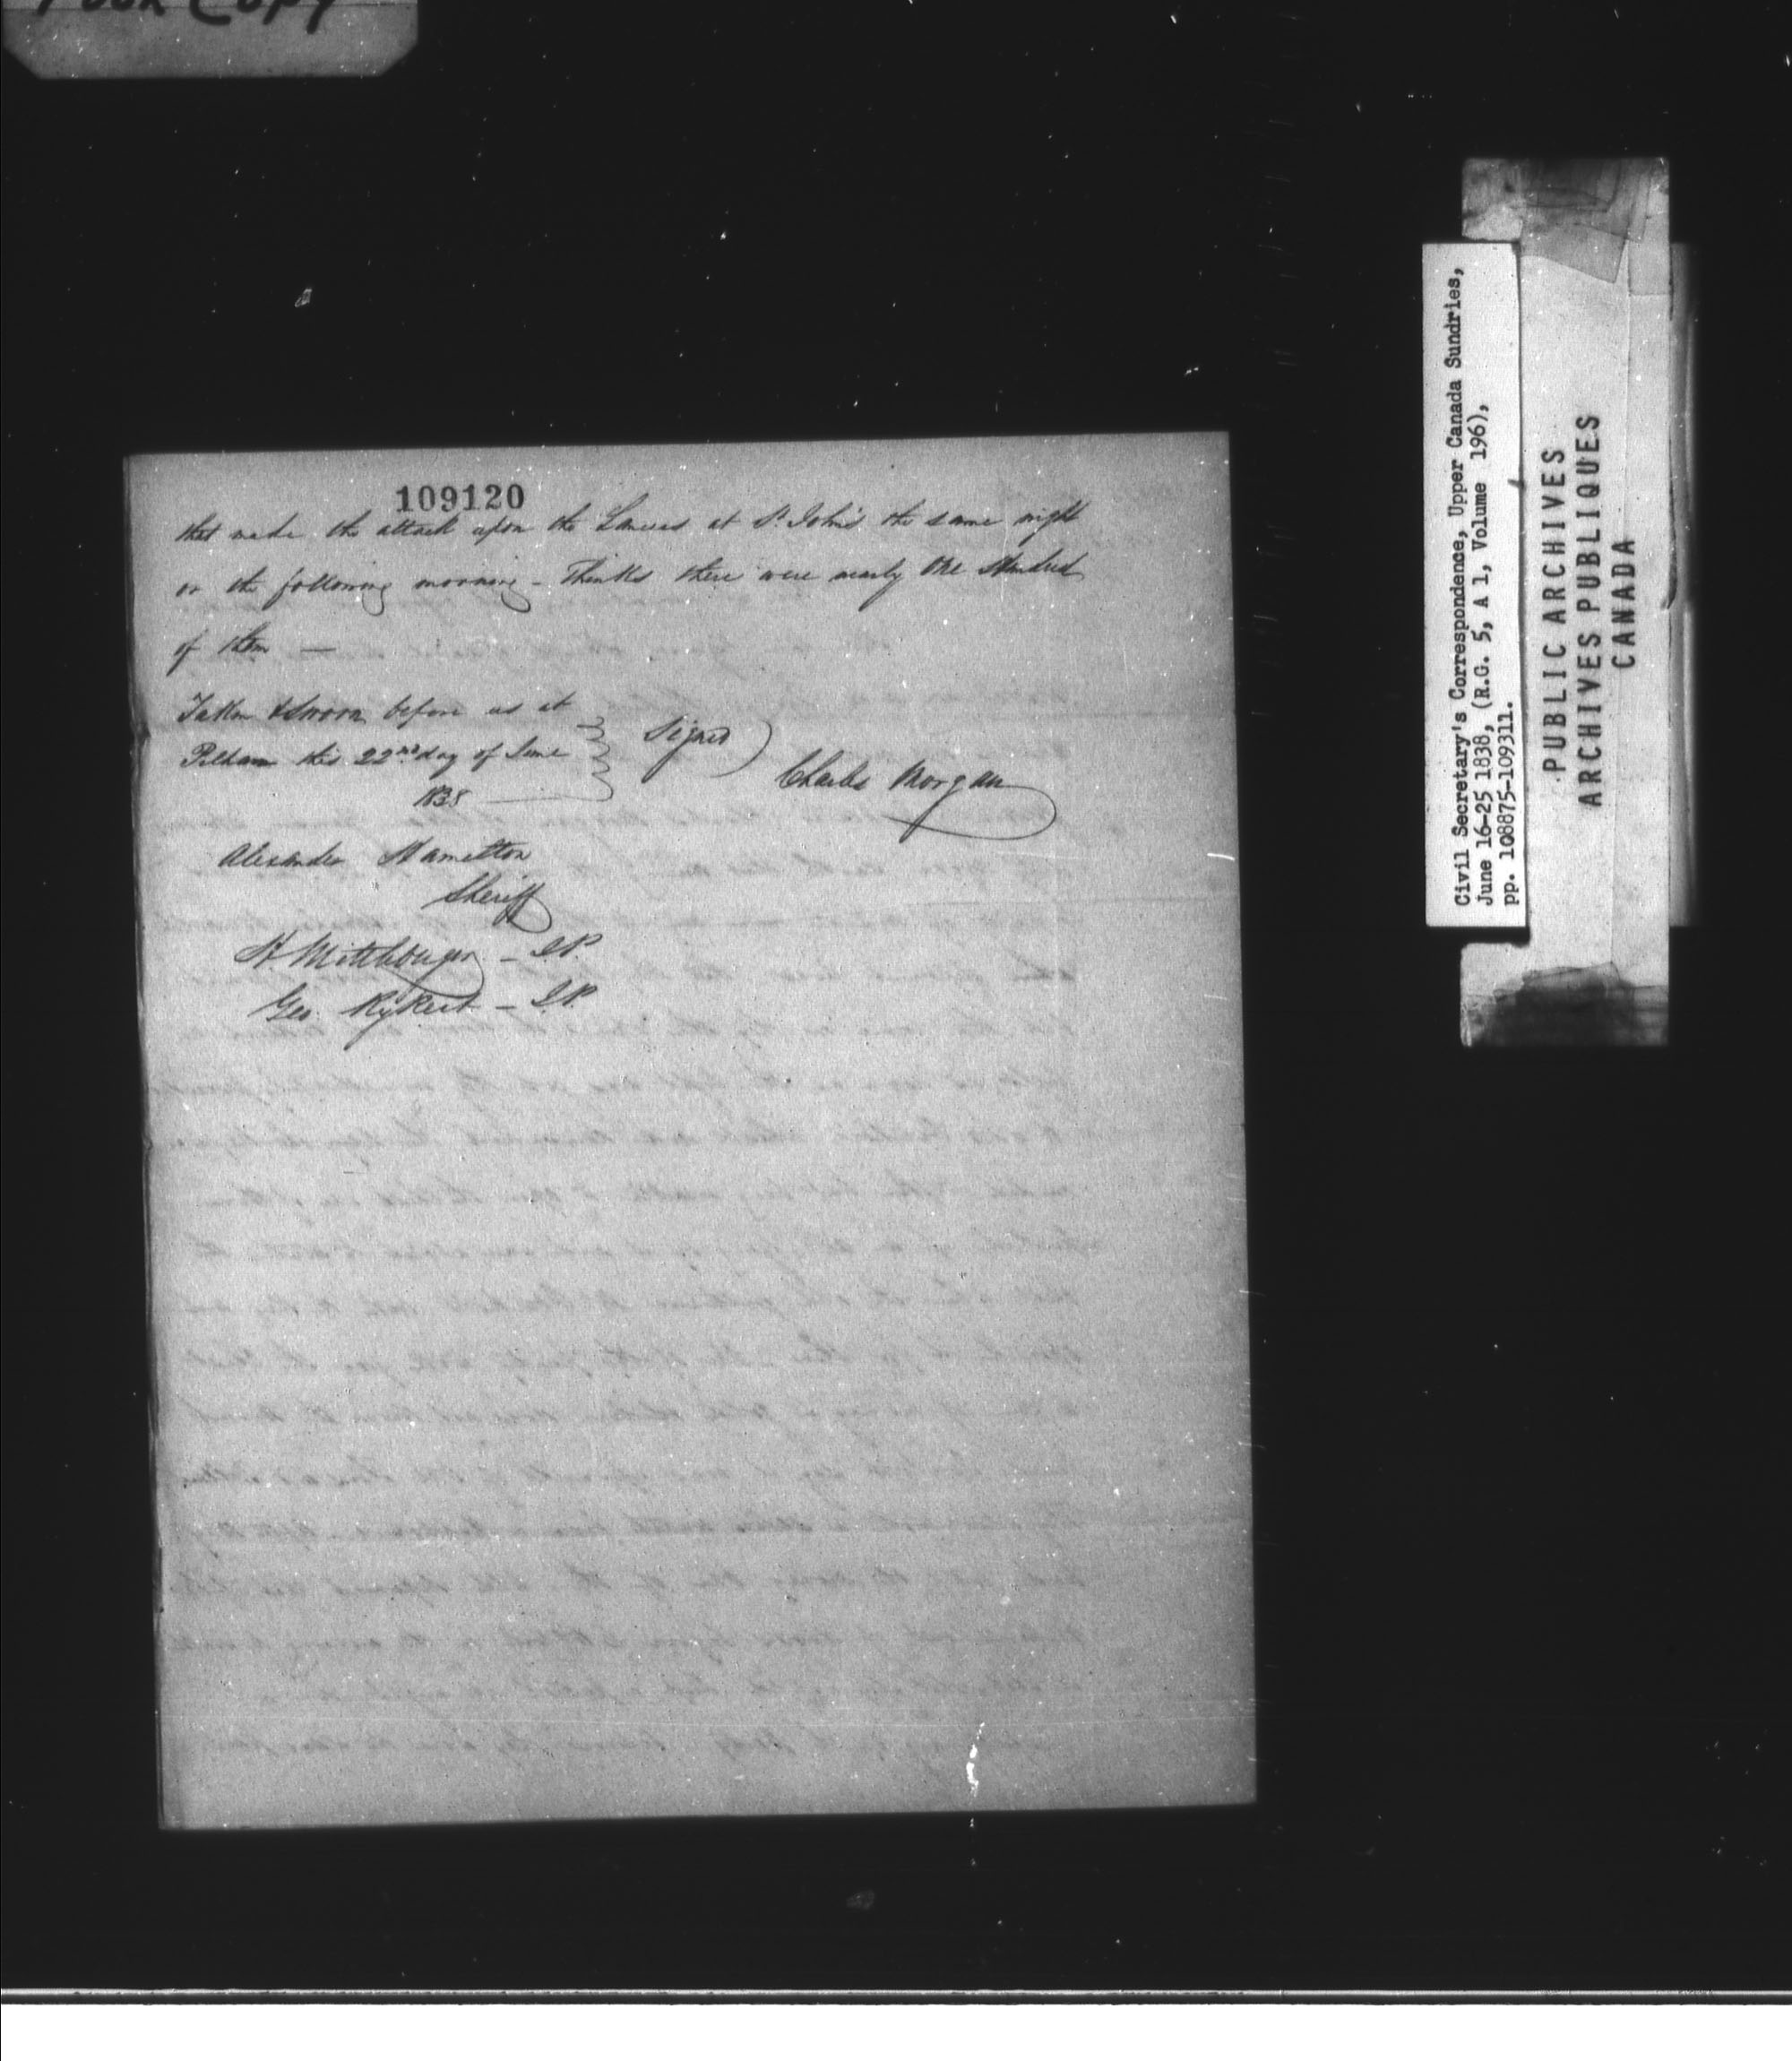 Poor Copy
109120
that made the attack upon the Lancers at St. John's the same night
or the following morning - Thinks there were nearly One Hundred
of them —
Taken & Sworn before us at
Pelham this 22nd day of June
1838
Signed)
Charles Morgan
Alexander Hamilton
Sheriff
H. Mittleberger - J.P.
Geo. Rykert - J.P.
Civil Secretary's Correspondence, Upper Canada Sundries,
June 16-25 1838, (R.G. 5, A 1, Volume 196),
pp. 108875-109311.
PUBLIC ARCHIVES
ARCHIVES PUBLIQUES
CANADA